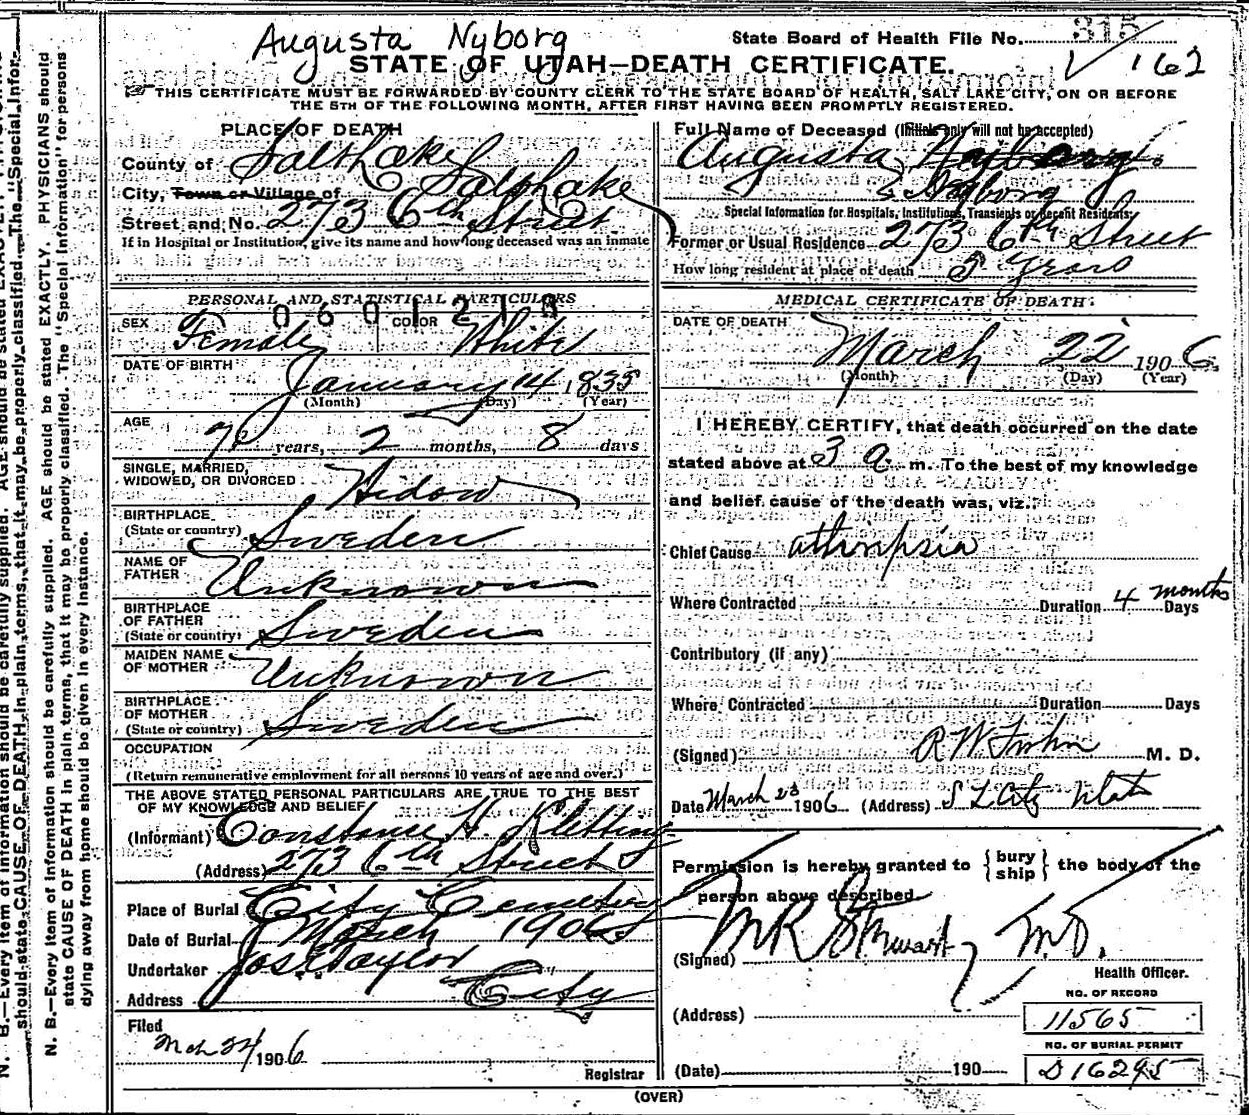 Augusta Nyborg
State Board of Health File No. 315
162
STATE OF UTAH—DEATH CERTIFICATE.
THIS CERTIFICATE MUST BE FORWARDED BY COUNTY CLERK TO THE STATE BOARD OF HEALTH, SALT LAKE CITY, ON OR BEFORE
THE 5TH OF THE FOLLOWING MONTH, AFTER FIRST HAVING BEEN PROMPTLY REGISTERED.
PLACE OF DEATH
County of Salt Lake
City, Town or Village of Salt Lake
Street and No. 273 6th Street
If in Hospital or Institution, give its name and how long deceased was an inmate
PERSONAL AND STATISTICAL PARTICULARS
SEX Female COLOR White
DATE OF BIRTH January 14, 1835
(Month) (Day) (Year)
AGE 71 years, 2 months, 8 days
SINGLE, MARRIED,
WIDOWED, OR DIVORCED Widow
BIRTHPLACE
(State or country) Sweden
NAME OF
FATHER Unknown
BIRTHPLACE
OF FATHER
(State or country) Sweden
MAIDEN NAME
OF MOTHER Unknown
BIRTHPLACE
OF MOTHER
(State or country) Sweden
OCCUPATION
(Return remunerative employment for all persons 10 years of age and over.)
THE ABOVE STATED PERSONAL PARTICULARS ARE TRUE TO THE BEST
OF MY KNOWLEDGE AND BELIEF
(Informant) Constance H. Kletting
(Address) 273 6th Street
Place of Burial City Cemetery
Date of Burial March 190
Undertaker Jos. Taylor
Address City
Filed
Mch 24 1906
Registrar
Full Name of Deceased (Initials only will not be accepted)
Augusta
Nyborg
Special Information for Hospitals, Institutions, Transients or Recent Residents:
Former or Usual Residence 273 6th Street
How long resident at place of death 5 Years
MEDICAL CERTIFICATE OF DEATH
DATE OF DEATH
March 22 1906
(Month) (Day) (Year)
I HEREBY CERTIFY, that death occurred on the date
stated above at 3 a. m. To the best of my knowledge
and belief cause of the death was, viz.:
Chief Cause
Where Contracted Duration 4 months Days
Contributory (if any)
Where Contracted Duration Days
(Signed) R W M. D.
Date March 23 1906 (Address) S L City Utah
Permission is hereby granted to { bury ship } the body of the
person above described.
(Signed) M R Stewart, M.D.
Health Officer.
(Address)
NO. OF RECORD
11565
NO. OF BURIAL PERMIT
(Date) 190 D 16295
(OVER)
N. B.—Every item of information should be carefully supplied. AGE should be stated EXACTLY. PHYSICIANS should
state CAUSE OF DEATH in plain terms, that it may be properly classified. The "Special Information" for persons
dying away from home should be given in every instance.